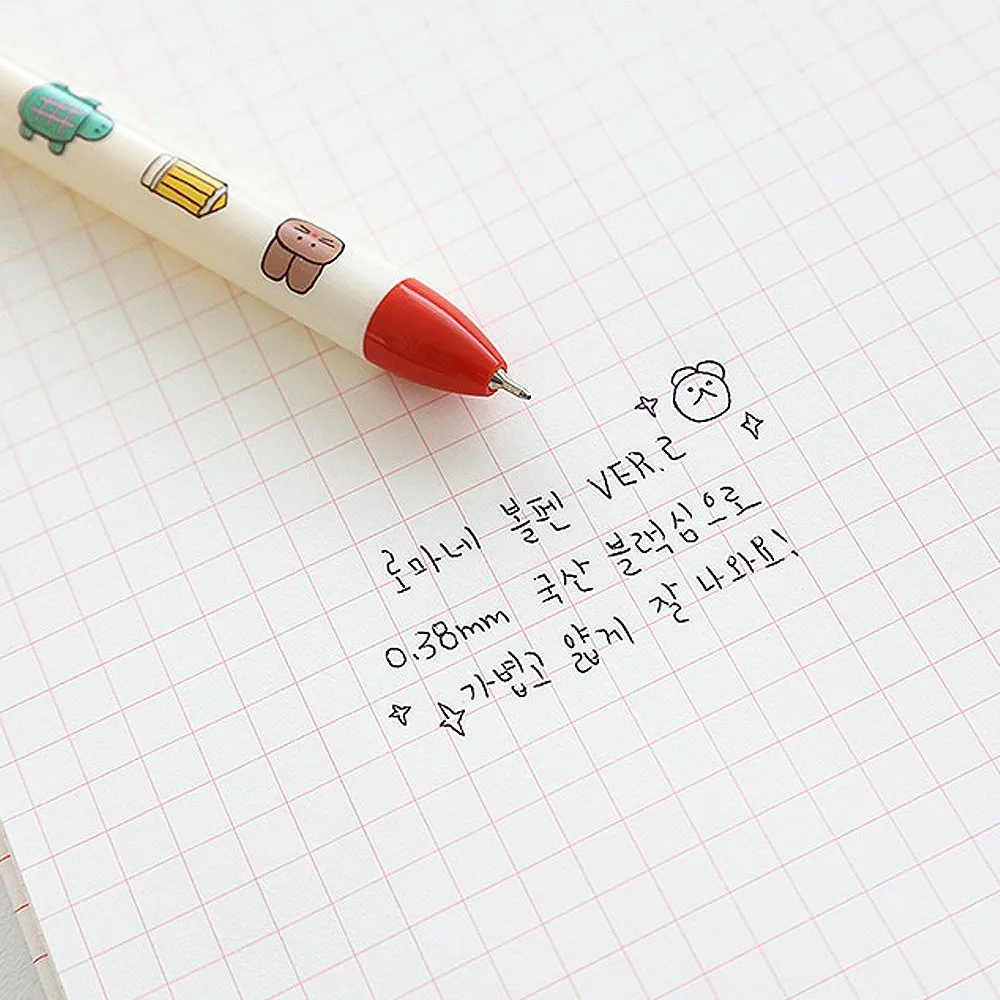 로마네 볼펜 VER.2
0.38mm 국산 블랙심으로
가볍고 얇게 잘 나와요!